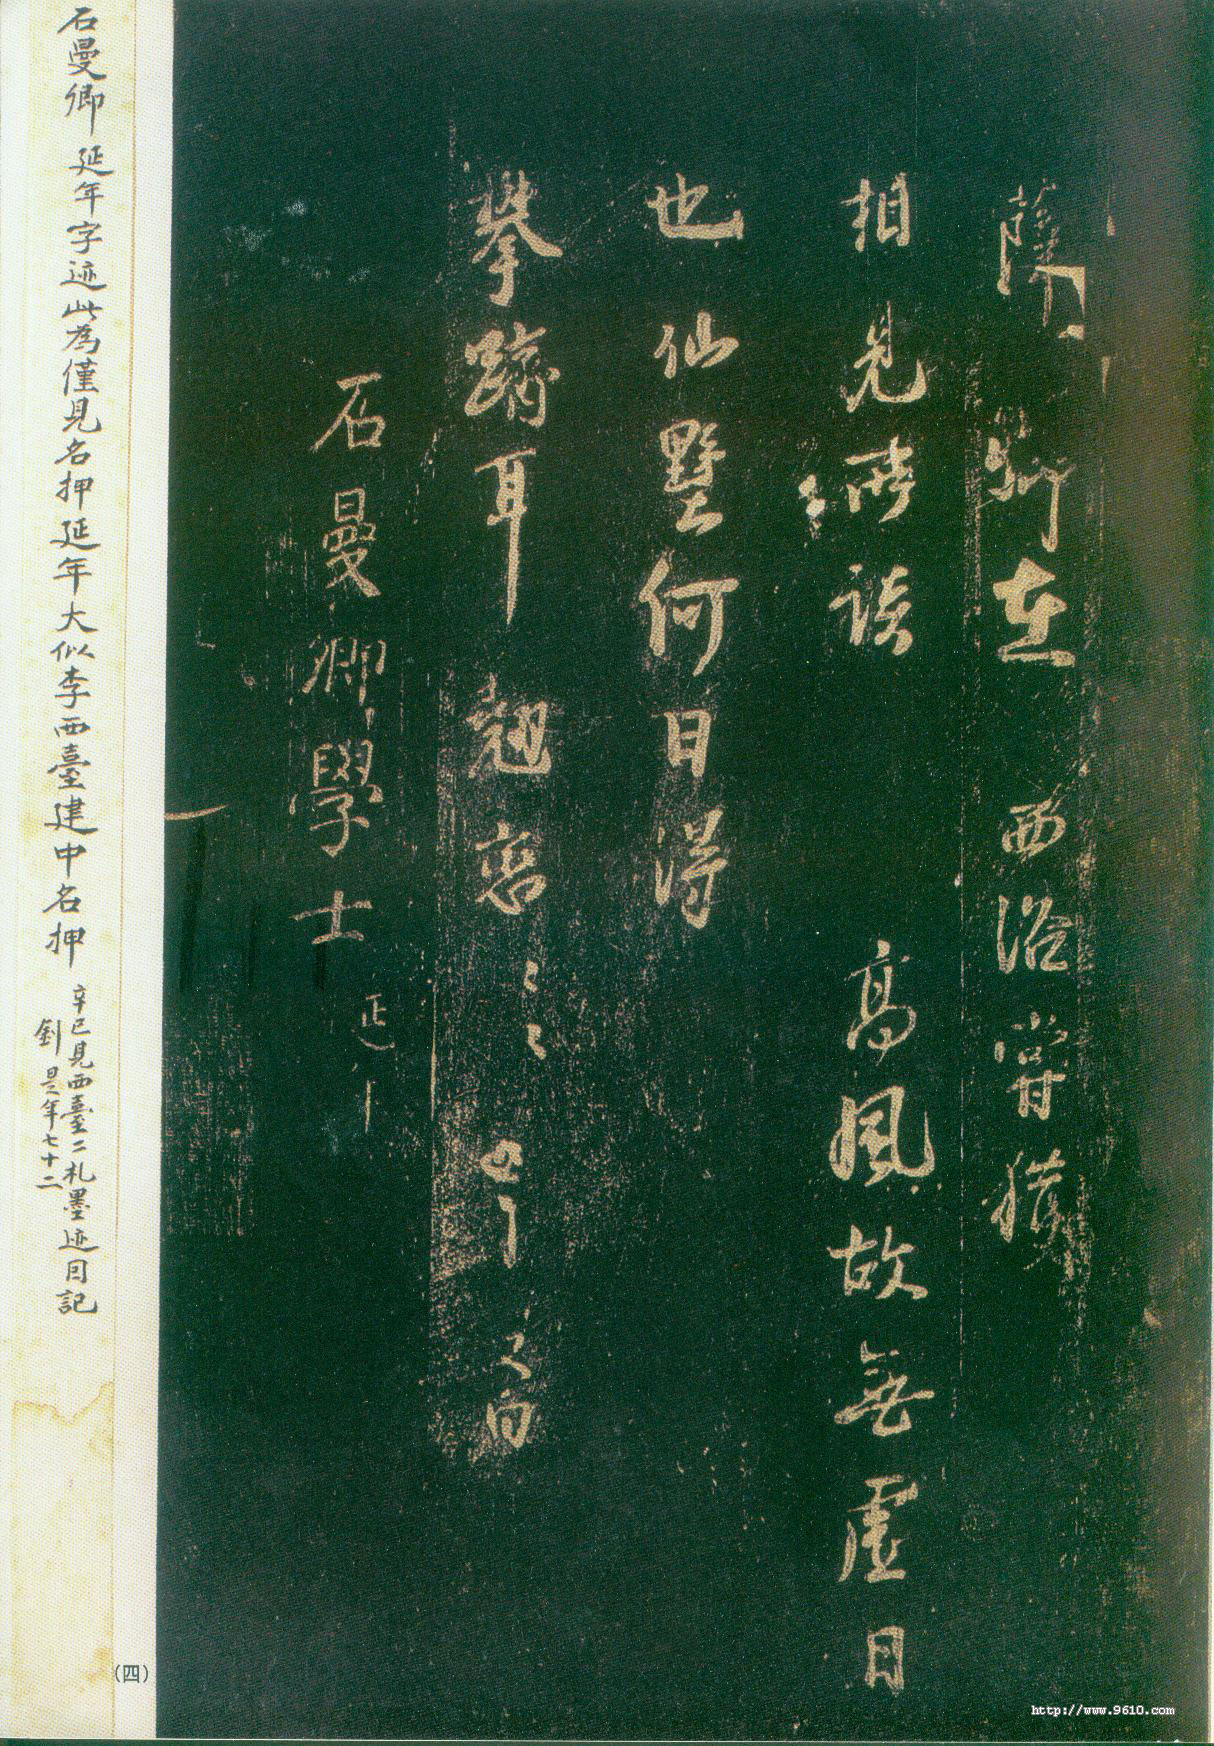 薛卿在西洛嘗獲
相見所談高風故無虛日
也仙墅何日得
攀躋耳翹企〻〻
白
石曼卿學士
石曼卿延年字迹此為僅見名押延年大似李西臺建中名押
辛巳見西臺二札墨迹因記
釗是年七十二
(四)
http://www.9610.com